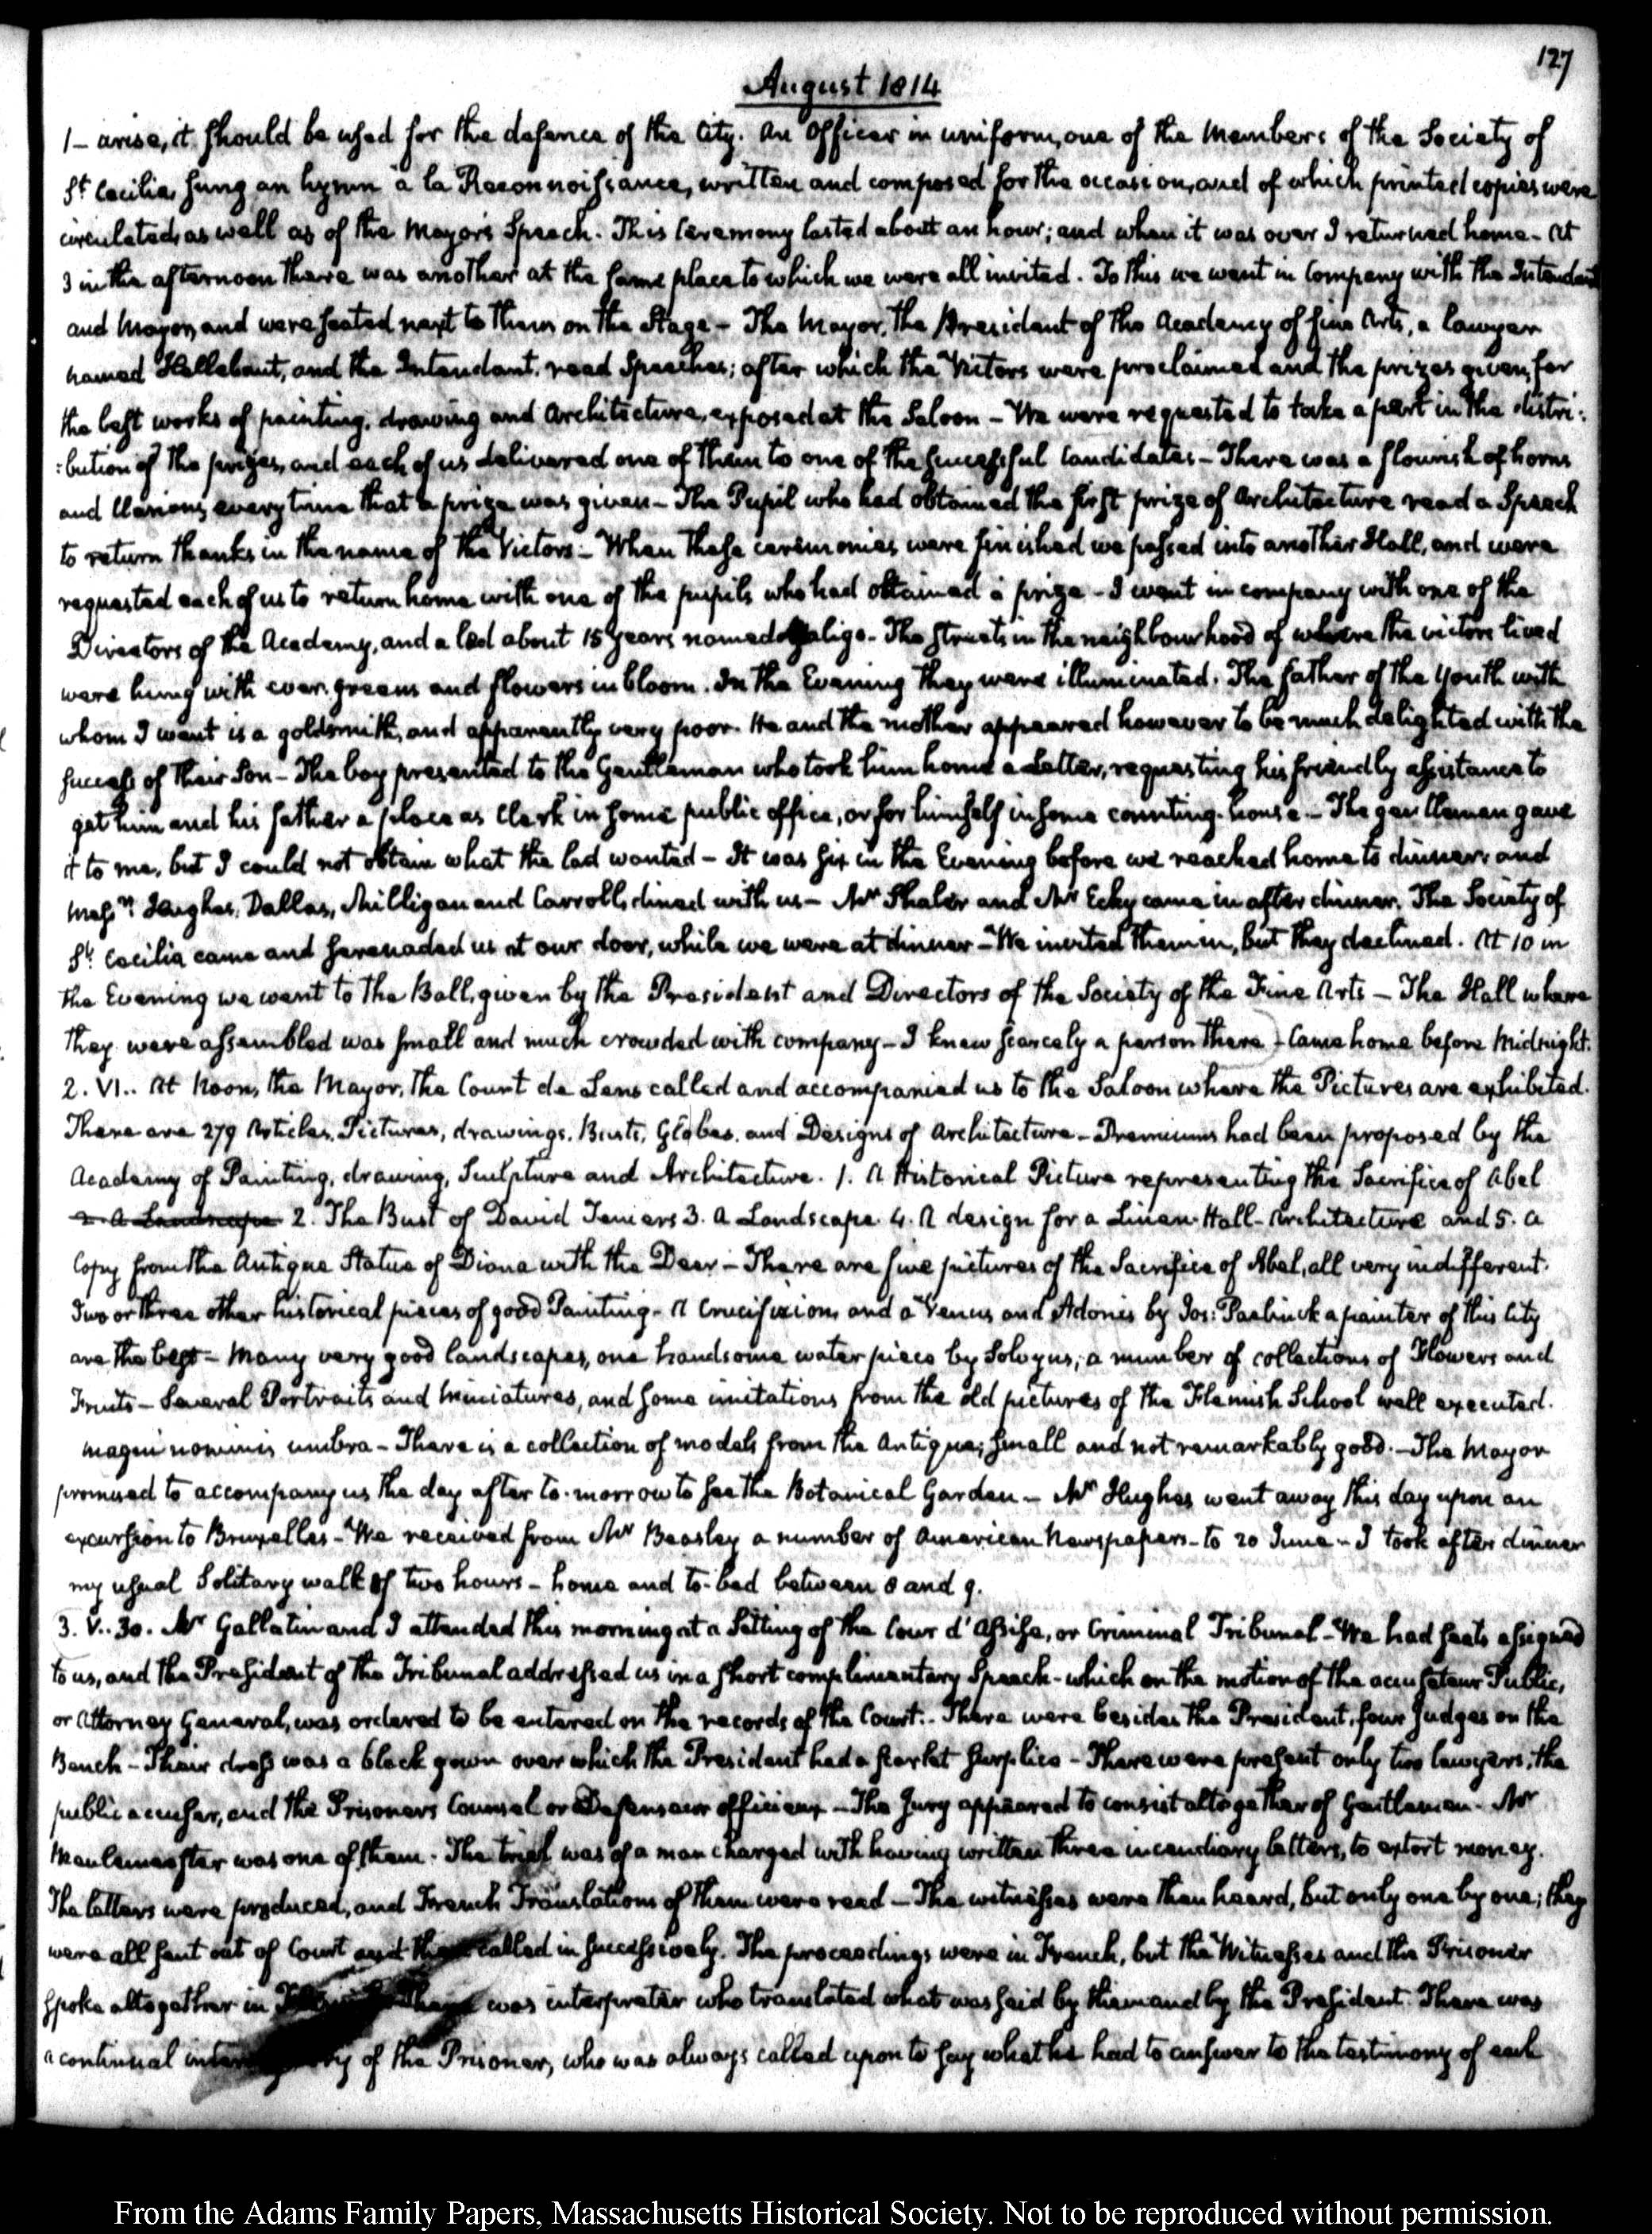 127
August 1814
1— arise, it should be used for the defence of the City. An Officer in uniform, one of the Members of the Society of
St. Cecilia, sung an hymn à la Reconnoissance, written and composed for the occasion, and of which printed copies were
circulated, as well as of the Mayor's Speech. This Ceremony lasted about an hour; and when it was over I returned home. At
3 in the afternoon there was another at the same place to which we were all invited. To this we went in Company with the Intendant
and Mayor, and were seated next to them on the Stage— The Mayor, the President of the Academy of fine Arts, a lawyer
named Hellebaut, and the Intendant, read Speeches; after which the Victors were proclaimed and the prizes given, for
the best works of painting, drawing and Architecture, exposed at the Saloon— We were requested to take a part in the distri:
:bution of the prizes, and each of us delivered one of them to one of the successful Candidates— There was a flourish of horns
and Clarions, every time that a prize was given— The Pupil who had obtained the first prize of Architecture read a Speech
to return thanks in the name of the Victors— When these ceremonies were finished we passed into another Hall, and were
requested each of us to return home with one of the pupils who had obtained a prize— I went in company with one of the
Directors of the Academy, and a lad about 15 years named The streets in the neighbourhood of where the victors lived
were hung with ever.greens and flowers in bloom. In the Evening they were illuminated. The father of the Youth with
whom I went is a goldsmith, and apparently very poor. He and the mother appeared however to be much delighted with the
success of their Son— The boy presented to the Gentleman who took him home a Letter, requesting his friendly assistance to
get him and his father a place as Clerk in some public office, or for himself in some counting-house.— The gentleman gave
it to me, but I could not obtain what the lad wanted— It was six in the Evening before we reached home to dinner; and
Messrs. Hughes, Dallas, Milligan and Carroll, dined with us— Mr Shaler and Mr Ecky came in after dinner. The Society of
St. Cecilia came and serenaded us at our door, while we were at dinner— We invited them in, but they declined. At 10 in
the Evening we went to the Ball, given by the President and Directors of the Society of the Fine Arts— The Hall where
they were assembled was small and much crowded with company— I knew scarcely a person there— Came home before Midnight.
2. VI.. At Noon, the Mayor, the Count de Lens called and accompanied us to the Saloon where the Pictures are exhibited.
There are 279 Articles, Pictures, drawings, Busts, Globes, and Designs of Architecture— Premiums had been proposed by the
Academy of Painting, drawing, Sculpture and Architecture. 1. A Historical Picture representing the Sacrifice of Abel
2. A Landscape 2. The Bust of David Teniers 3. A Landscape. 4. A design for a Linen-Hall- Architecture and 5. A
Copy from the Antique Statue of Diana with the Deer— There are five pictures of the Sacrifice of Abel, all very indifferent.
Two or three other historical pieces of good Painting- A Crucifixion, and a Venus and Adonis by Jos: Paelinck a painter of this City
are the best— Many very good landscapes, one handsome water piece by Solvyns; a number of collections of Flowers and
Fruits— Several Portraits and Miniatures, and some imitations from the old pictures of the Flemish School well executed.
magni nominis umbra— There is a collection of models from the Antique; small and not remarkably good.— The Mayor
promised to accompany us the day after to-morrow to see the Botanical Garden— Mr Hughes went away this day upon an
excursion to Bruxelles— We received from Mr Beasley a number of American Newspapers- to 20 June— I took after dinner
my usual Solitary walk of two hours— home and to-bed between 8 and 9.
3. V..30. Mr Gallatin and I attended this morning at a Sitting of the Cour d'Assise, or Criminal Tribunal— We had seats assigned
to us, and the President of the Tribunal addressed us in a short complimentary Speech- which on the motion of the accusateur Public,
or Attorney General, was ordered to be entered on the records of the Court.— There were besides the President, four Judges on the
Bench— Their dress was a black gown over which the President had a scarlet surplice— There were present only two lawyers, the
public accuser, and the Prisoners Counsel or Defenseur officieux— The Jury appeared to consist altogether of Gentlemen. Mr
Meulemeester was one of them. The trial was of a man charged with having written three incendiary letters, to extort money.
The letters were produced, and French Translations of them were read— The witnesses were then heard, but only one by one; they
were all sent out of Court and then called in successively. The proceedings were in French, but the Witnesses and the Prisoner
spoke altogether in was interpreter who translated what was said by them and by the President. There was
a continual of the Prisoner, who was always called upon to say what he had to answer to the testimony of each
From the Adams Family Papers, Massachusetts Historical Society. Not to be reproduced without permission.